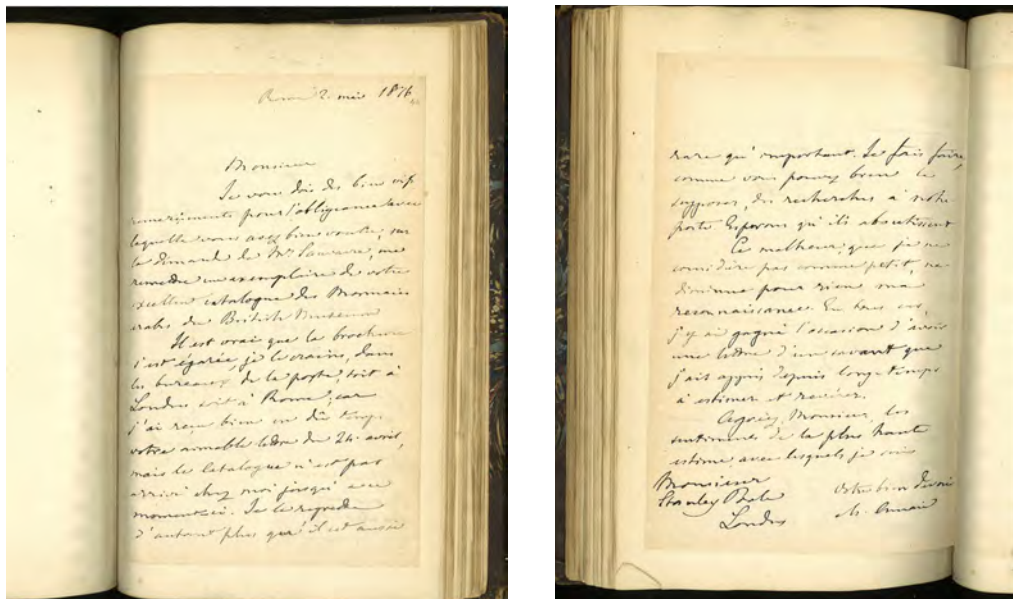 Rome 2. mai 1876
Monsieur
Je vous dois des bien vifs
remerciments pour l'obligeance avec
laquelle vous avez bien voulu, sur
la dimande de Mr. Sauvaire, me
remettre un exemplaire de votre
excellent catalogue des Monnaies
arabes du British Museum
Il est vrai que la brochure
s'est égarée, je le crains, dans
les bureaux de la poste, soit à
Londres soit à Rome; car
j'ai reçu bien en dû temps
votre aimable lettre du 24. avril,
mais le Catalogue n'est pas
arrivé chez moi jusqu'à ce
moment-ci. Je le regrette
d'autant plus qu'il est aussi
rare qu'important. Je fais faire,
comme vous pouvez bien le
supposer, des recherches à notre
poste. Esperons qu'ils aboutissent
Ce malheur, que je ne
considère pas comme petit, ne
diminue pour rien ma
reconnaissance. En tous cas
j'y ai gagné l'occasion d'avoir
une lettre d'un savant que
j'ait appris depuis longtemps
à estimer et reverer.
Agréez, Monsieur, les
sentiments de la plus haute
estime avec lesquels je suis
Monsieur
Stanley Poole
Londres
Votre bien devoué
M. Amari